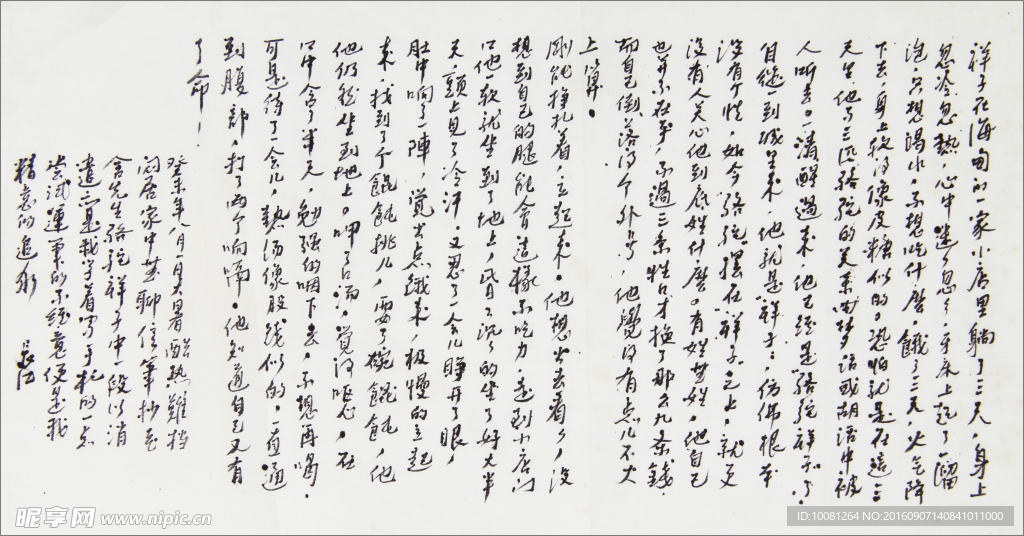 祥子在海甸的一家小店里躺了三天,身上
忽冷忽热,心中迷迷忽忽,牙床上起了一溜
泡,只想喝水,不想吃什么。饿了三天,火气降
下去,身上软得像皮糖似的。恐怕就是在这三
天里,他与三匹骆驼的关系由梦话或胡话中被
人听去。一清醒过来,他已经是骆驼祥子了。
自从到城里来,他就是祥子,仿佛根本
没有个姓,如今骆驼摆在祥子之上,就更
没有人关心他到底姓什么。有姓无姓,他自己
也并不在乎,不过三条牲口才换了那么几条钱
而自己倒落得个外号,他觉得有点儿不大
上算。
刚能挣扎着立起来。他想出去看看,没
想到自己的腿能会这样不吃力,走到小店门
口他软就坐到了地上,昏昏沉沉的坐了好大半
天,头上见了冷汗。又忍了一会儿睁开了眼,
肚中响了一阵,觉出点饿来,极慢的立起
来,找到了个馄饨挑儿,要了碗馄饨,他
他仍然坐到地上。呷了口汤,觉得恶心,在
口中含了半天,勉强的咽下去,不想再喝。
可是待了一会儿,热汤像股线似的,一直通
到腹部,打了两个响嗝。他知道自己又有
了命,
癸未年八月一日大暑酷热难挡
闷居家中无聊信笔抄老
舍先生骆驼祥子中一段以消
遣
尝试运笔的不经意便是我
精意的追求 长江
昵享网 www.nipic.cn
ID:10081264 NO:20160907140841011000